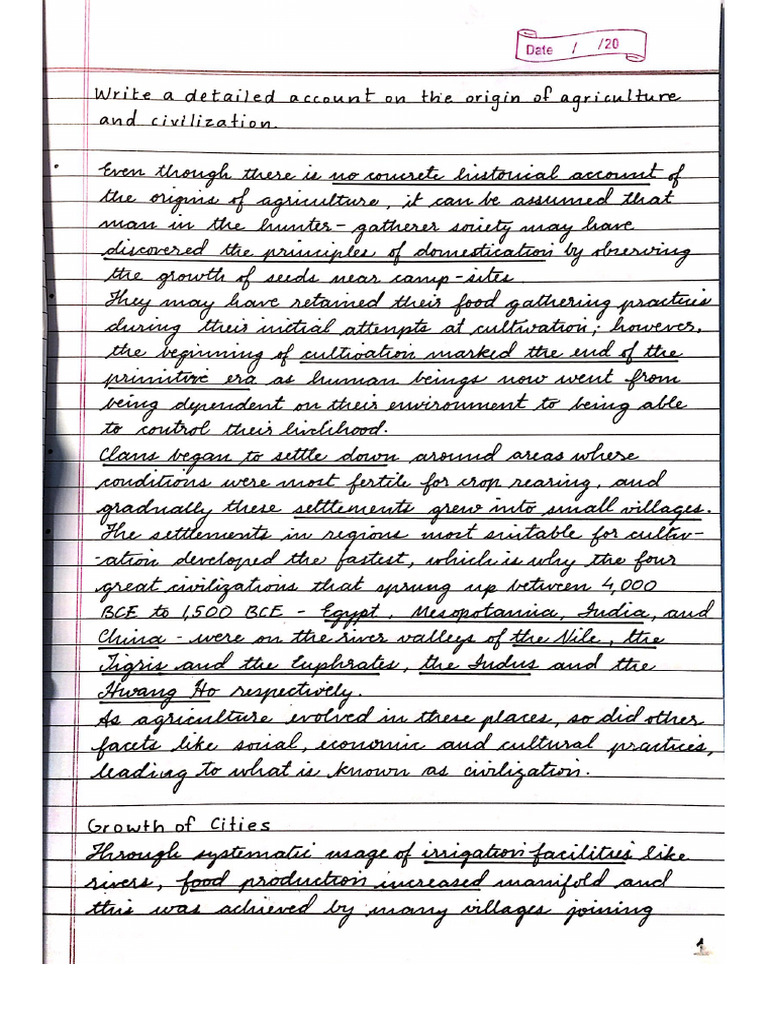 Date / /20
Write a detailed account on the origin of agriculture
and civilization.
Even though there is no concrete historical account of
the origins of agriculture, it can be assumed that
man in the hunter-gatherer society may have
discovered the principles of domestication by observing
the growth of seeds near camp-sites.
They may have retained their food gathering practices
during their initial attempts at cultivation; however,
the beginning of cultivation marked the end of the
primitive era as human beings now went from
being dependent on their environment to being able
to control their livelihood.
Clans began to settle down around areas where
conditions were most fertile for crop rearing, and
gradually these settlements grew into small villages.
The settlements in regions most suitable for cultiv-
-ation developed the fastest, which is why the four
great civilizations that sprung up between 4,000
BCE to 1,500 BCE - Egypt, Mesopotamia, India, and
China - were on the river valleys of the Nile, the
Tigris and the Euphrates, the Indus and the
Hwang Ho respectively.
As agriculture evolved in these places, so did other
facets like social, economic and cultural practices,
leading to what is known as civilization.
Growth of Cities
Through systematic usage of irrigation facilities like
rivers, food production increased manifold and
this was achieved by many villages joining
1